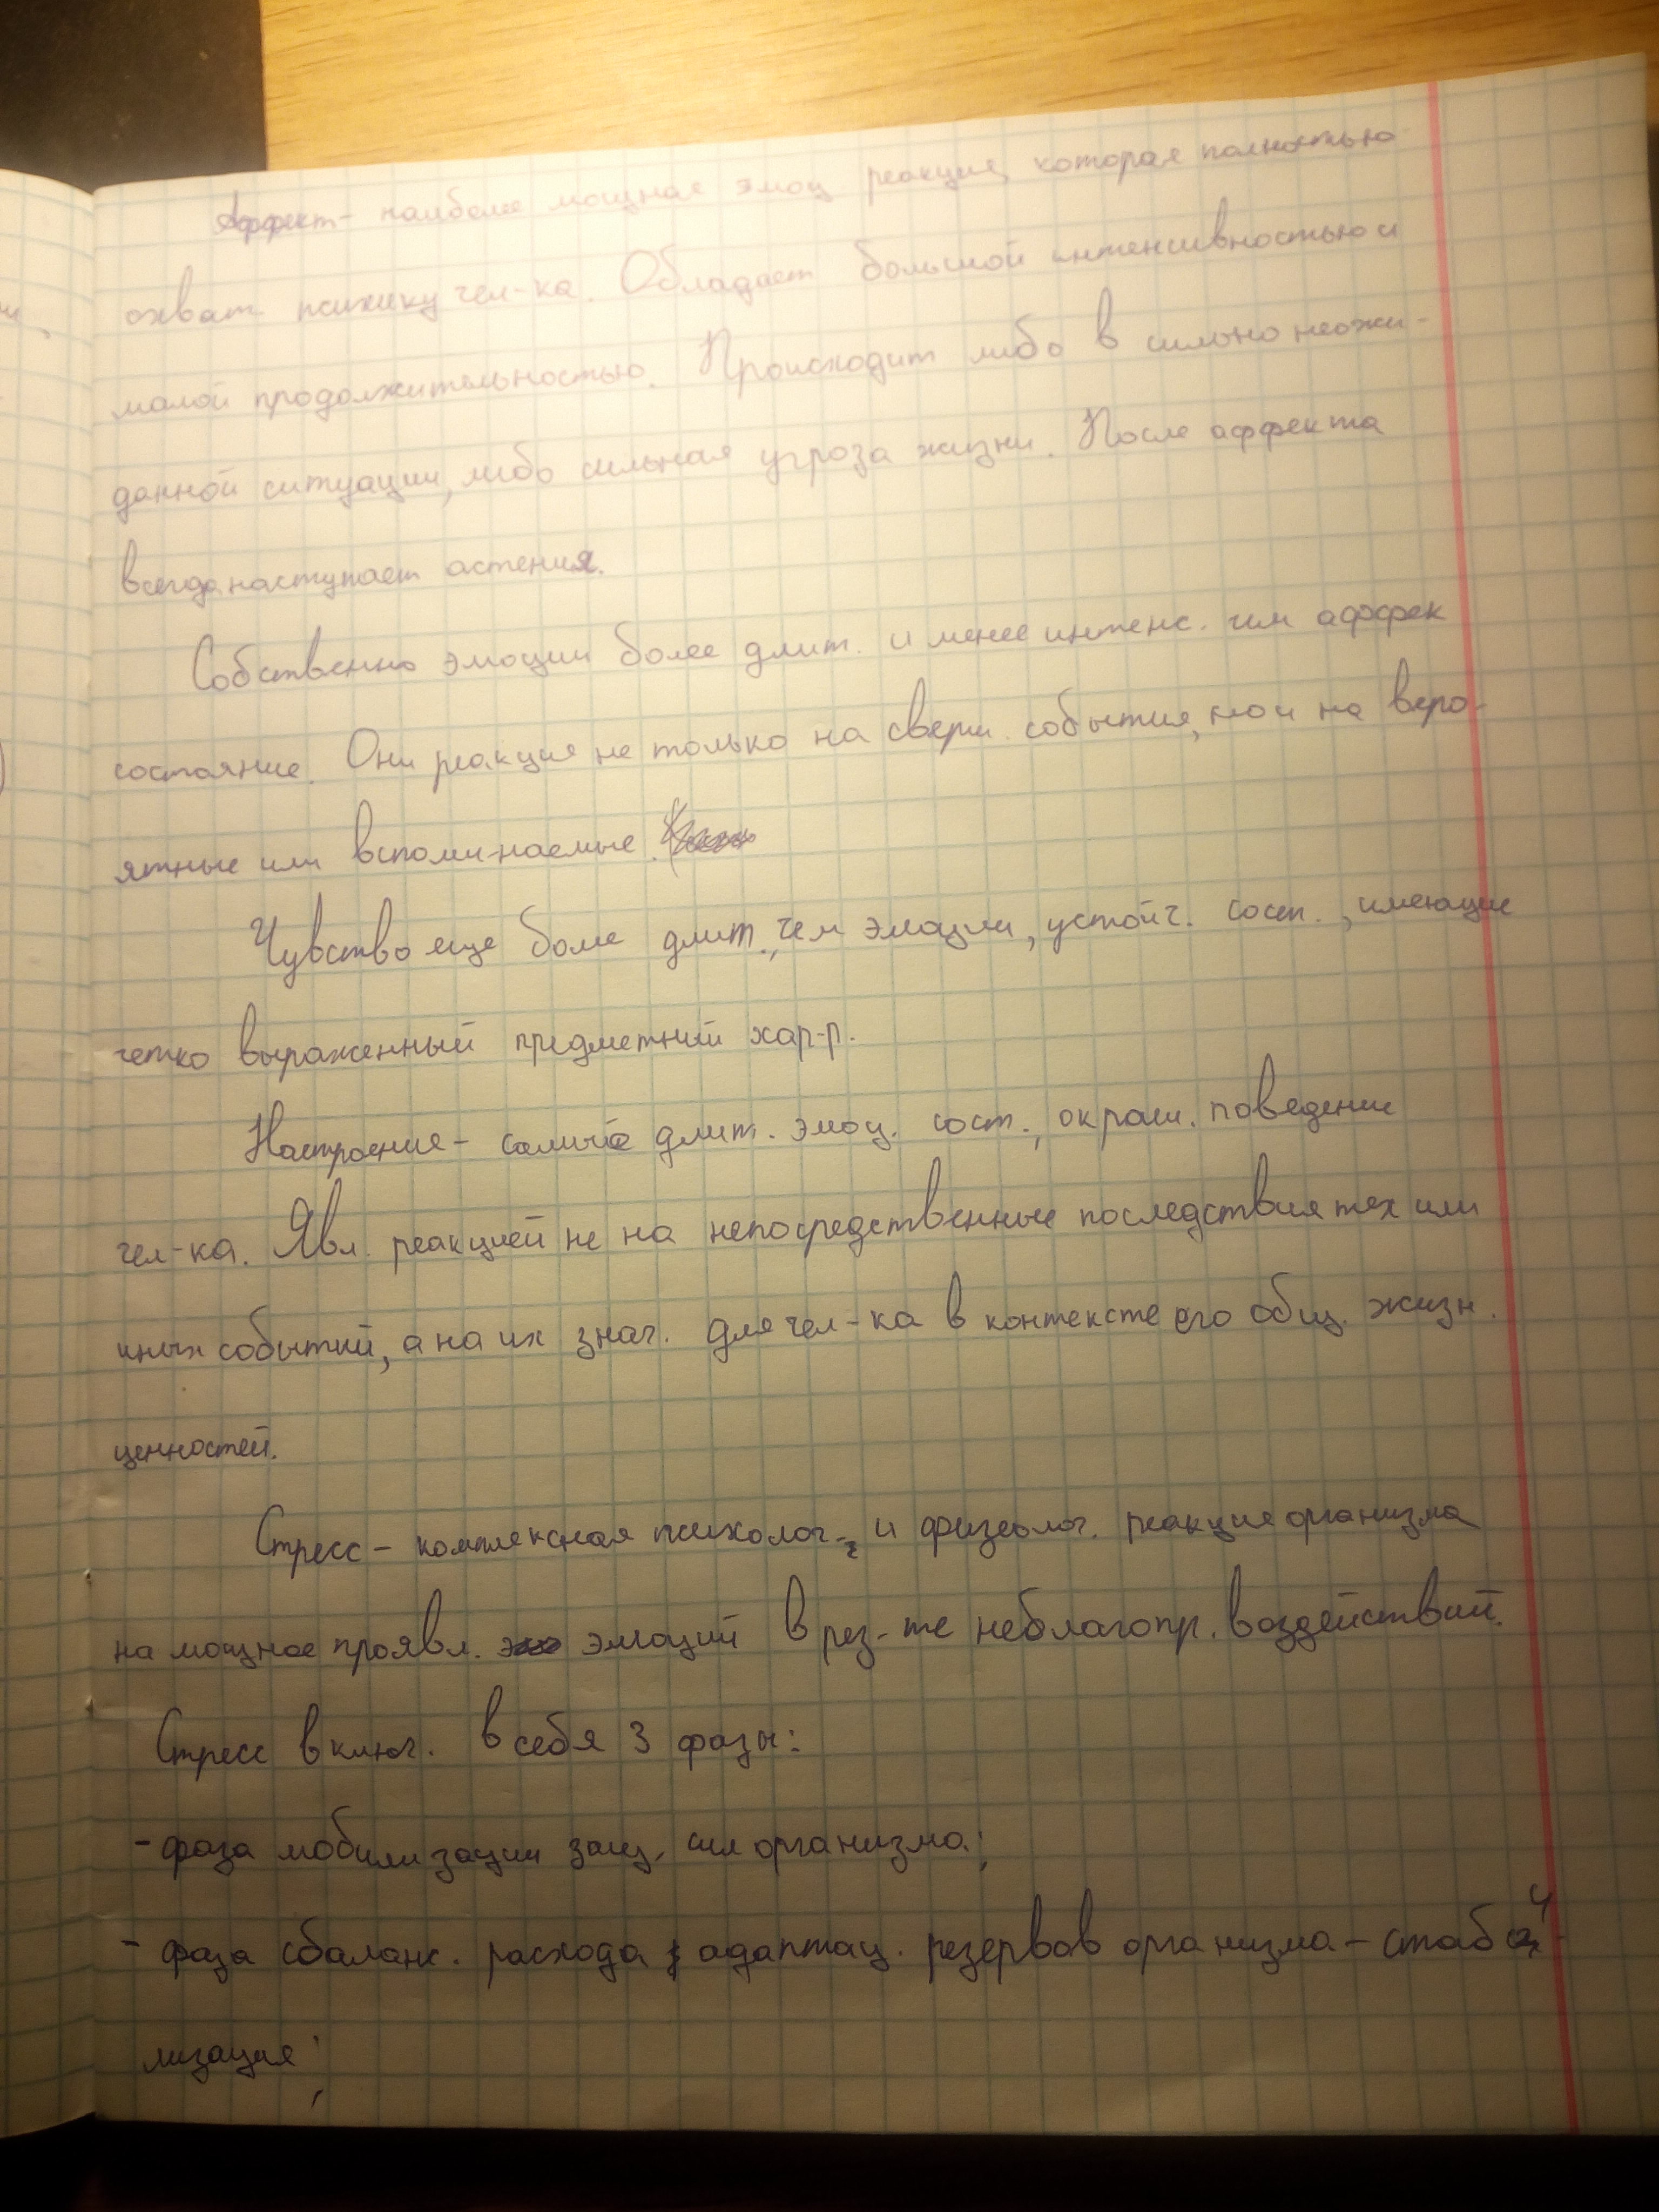 Аффект - наиболее мощная эмоц реакция, которая полностью
охват психику чел-ка. Обладает большой интенсивностью и
малой продолжительностью. Происходит либо в сильно неожи-
данной ситуации, либо сильная угроза жизни. После аффекта
всегда наступает астения.
Собственно эмоции более длит. и менее интенс. чем аффек
состояние. Они реакция не только на сверш. события, но и на веро-
ятные или вспоминаемые.
Чувство еще более длит., чем эмоции, устойч. сост., имеющие
четко выраженный предметный хар-р.
Настроение - самые длит. эмоц. сост., окраш. поведение
чел-ка. Явл. реакцией не на непосредственные последствия тех или
иных событий, а на их знач. для чел-ка в контексте его общ. жизн.
ценностей.
Стресс - комплексная психолог. и физеолог. реакция организма
на мощное проявл. эмоций в рез-те неблагопр. воздействий.
Стресс включ. в себя 3 фазы:
- фаза мобилизации защ. сил организма;
- фаза сбаланс. расхода адаптац. резервов организма - стаби-
лизация;